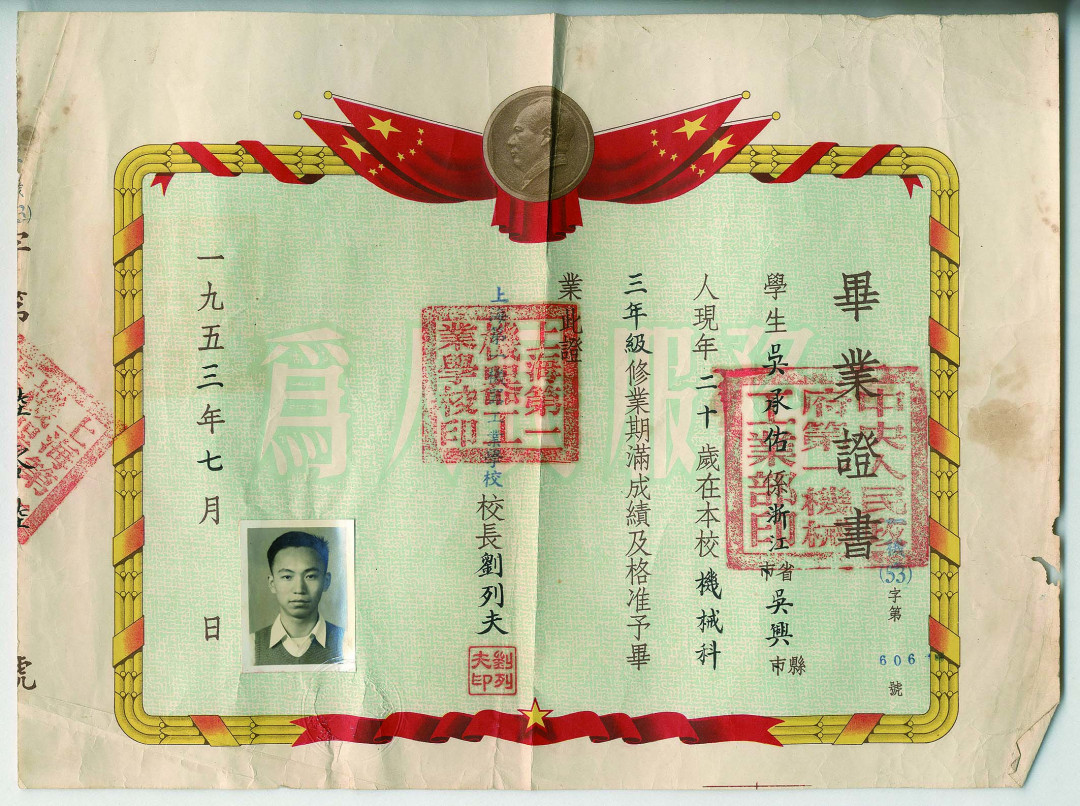 畢業證書
一機(53)字第606號
學生吳承佑係浙江省市吳興縣市
人現年二十歲在本校機械科
三年級修業期滿成績及格准予畢
業此證
上海第一機器工業學校校長劉列夫
劉列夫印
一九五三年七月 日
中央人民政府第一機械工業部印
上海第一機器工業學校印
爲人民服務
字第
號